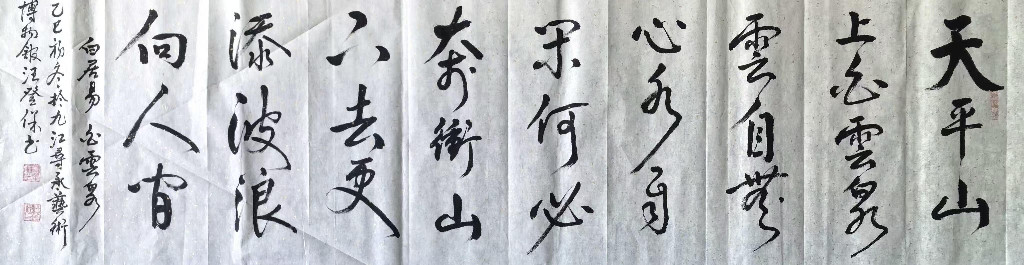 天平山
上白雲泉
雲自無
心水自
閑何必
奔衝山
下去更
添波浪
向人間
白居易 白雲泉
乙巳初冬於九江尋承藝術
博物館汪登保書